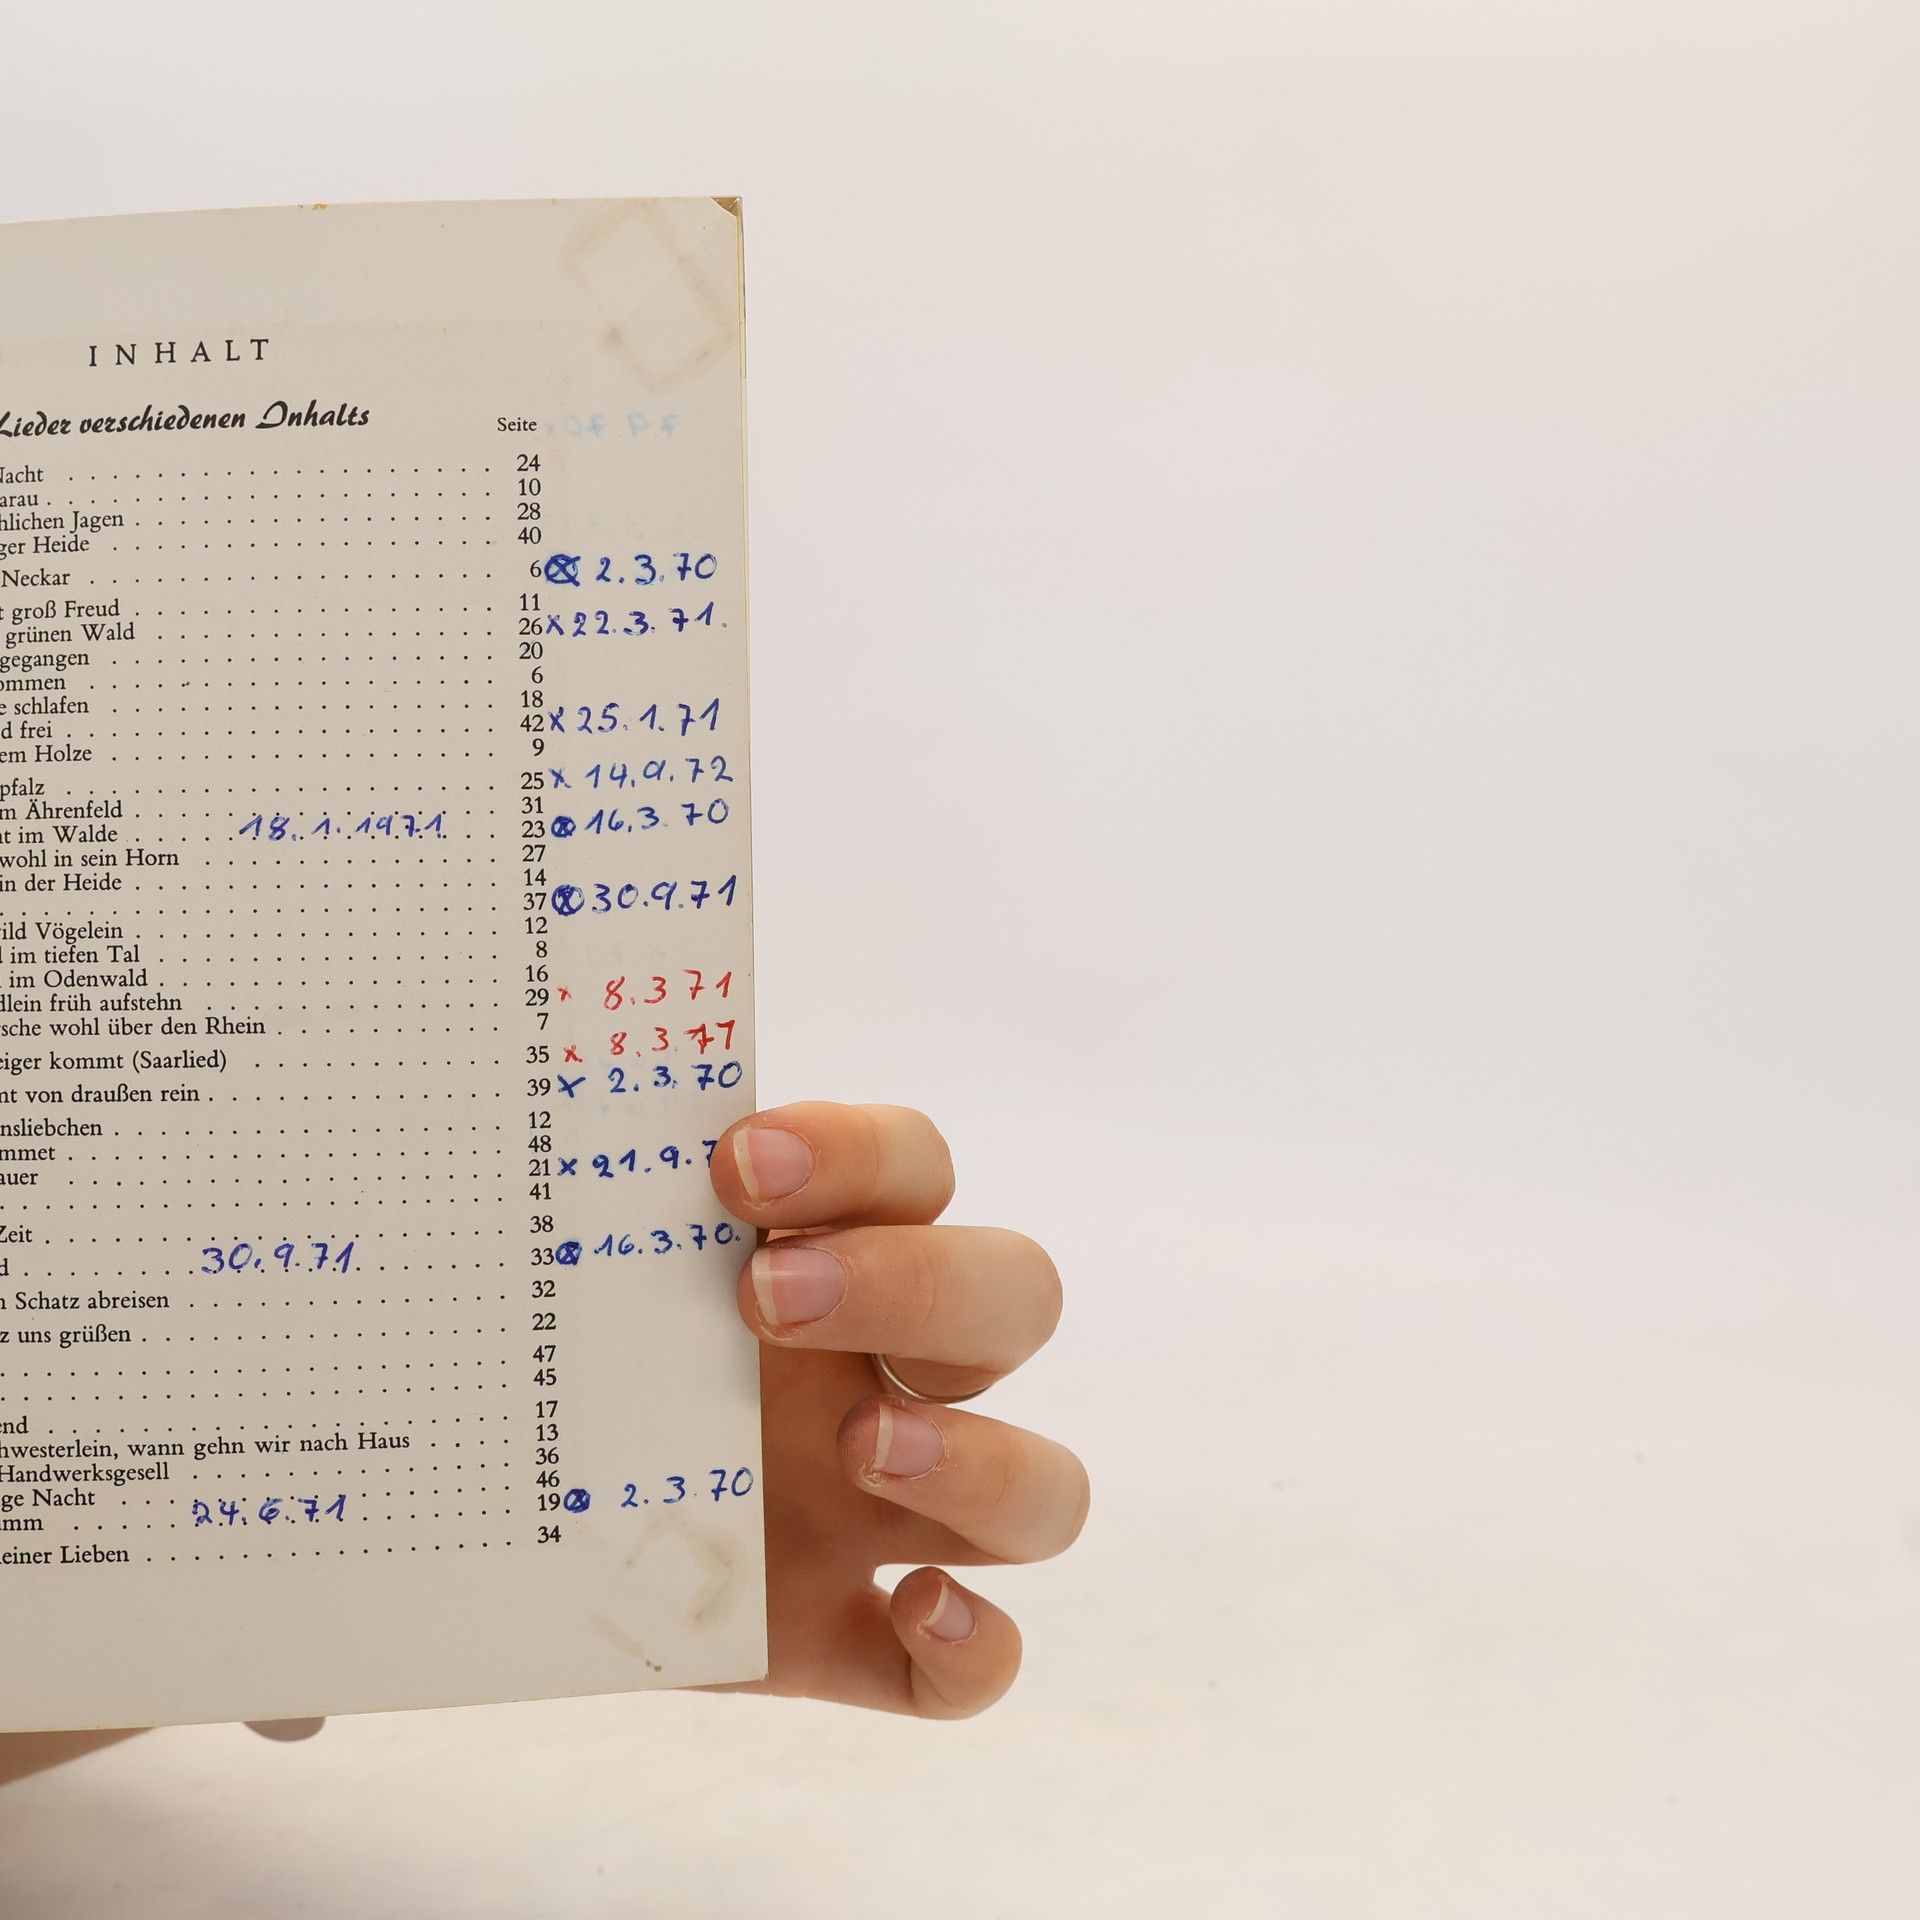 INHALT
Lieder verschiedenen Inhalts Seite
Nacht . . . . . . . . . . . . . . . . . . . 24
arau . . . . . . . . . . . . . . . . . . . . 10
hlichen Jagen . . . . . . . . . . . . . . . . 28
ger Heide . . . . . . . . . . . . . . . . . 40
Neckar . . . . . . . . . . . . . . . . . . 6 ⊗ 2.3.70
t groß Freud . . . . . . . . . . . . . . . . 11
grünen Wald . . . . . . . . . . . . . . . 26 x 22.3.71.
gegangen . . . . . . . . . . . . . . . . . 20
ommen . . . . . . . . . . . . . . . . . . 6
e schlafen . . . . . . . . . . . . . . . . . 18
d frei . . . . . . . . . . . . . . . . . . . 42 x 25.1.71
em Holze . . . . . . . . . . . . . . . . . 9
pfalz . . . . . . . . . . . . . . . . . . . 25 x 14.9.72
m Ährenfeld . . . . . . . . . . . . . . . . 31
ht im Walde . . . . . 18.1.1971 . . 23 ⊗ 16.3.70
wohl in sein Horn . . . . . . . . . . . . . 27
in der Heide . . . . . . . . . . . . . . . . 14
. . . . . . . . . . . . . . . . . . . . . . 37 ⊗ 30.9.71
ild Vögelein . . . . . . . . . . . . . . . . 12
l im tiefen Tal . . . . . . . . . . . . . . . 8
im Odenwald . . . . . . . . . . . . . . . 16
dlein früh aufstehn . . . . . . . . . . . . . 29 x 8.3 71
rsche wohl über den Rhein . . . . . . . . . . 7
eiger kommt (Saarlied) . . . . . . . . . . . 35 x 8.3.71
nt von draußen rein . . . . . . . . . . . . . 39 x 2.3.70
nsliebchen . . . . . . . . . . . . . . . . . 12
mmet . . . . . . . . . . . . . . . . . . . 48
auer . . . . . . . . . . . . . . . . . . . 21 x 21.9.7
. . . . . . . . . . . . . . . . . . . . . . 41
Zeit . . . . . . . . . . . . . . . . . . . . 38
d . . . . . . . . 30.9.71 . . . . . . 33 ⊗ 16.3.70.
n Schatz abreisen . . . . . . . . . . . . . . 32
z uns grüßen . . . . . . . . . . . . . . . . 22
. . . . . . . . . . . . . . . . . . . . . . 47
. . . . . . . . . . . . . . . . . . . . . . 45
end . . . . . . . . . . . . . . . . . . . . 17
hwesterlein, wann gehn wir nach Haus . . . . 13
Handwerksgesell . . . . . . . . . . . . . . 36
ge Nacht . . . . . . . . . . . . . . . . . 46
umm . . . . . 24.6.71 . . . . . . . 19 ⊗ 2.3.70
einer Lieben . . . . . . . . . . . . . . . . 34